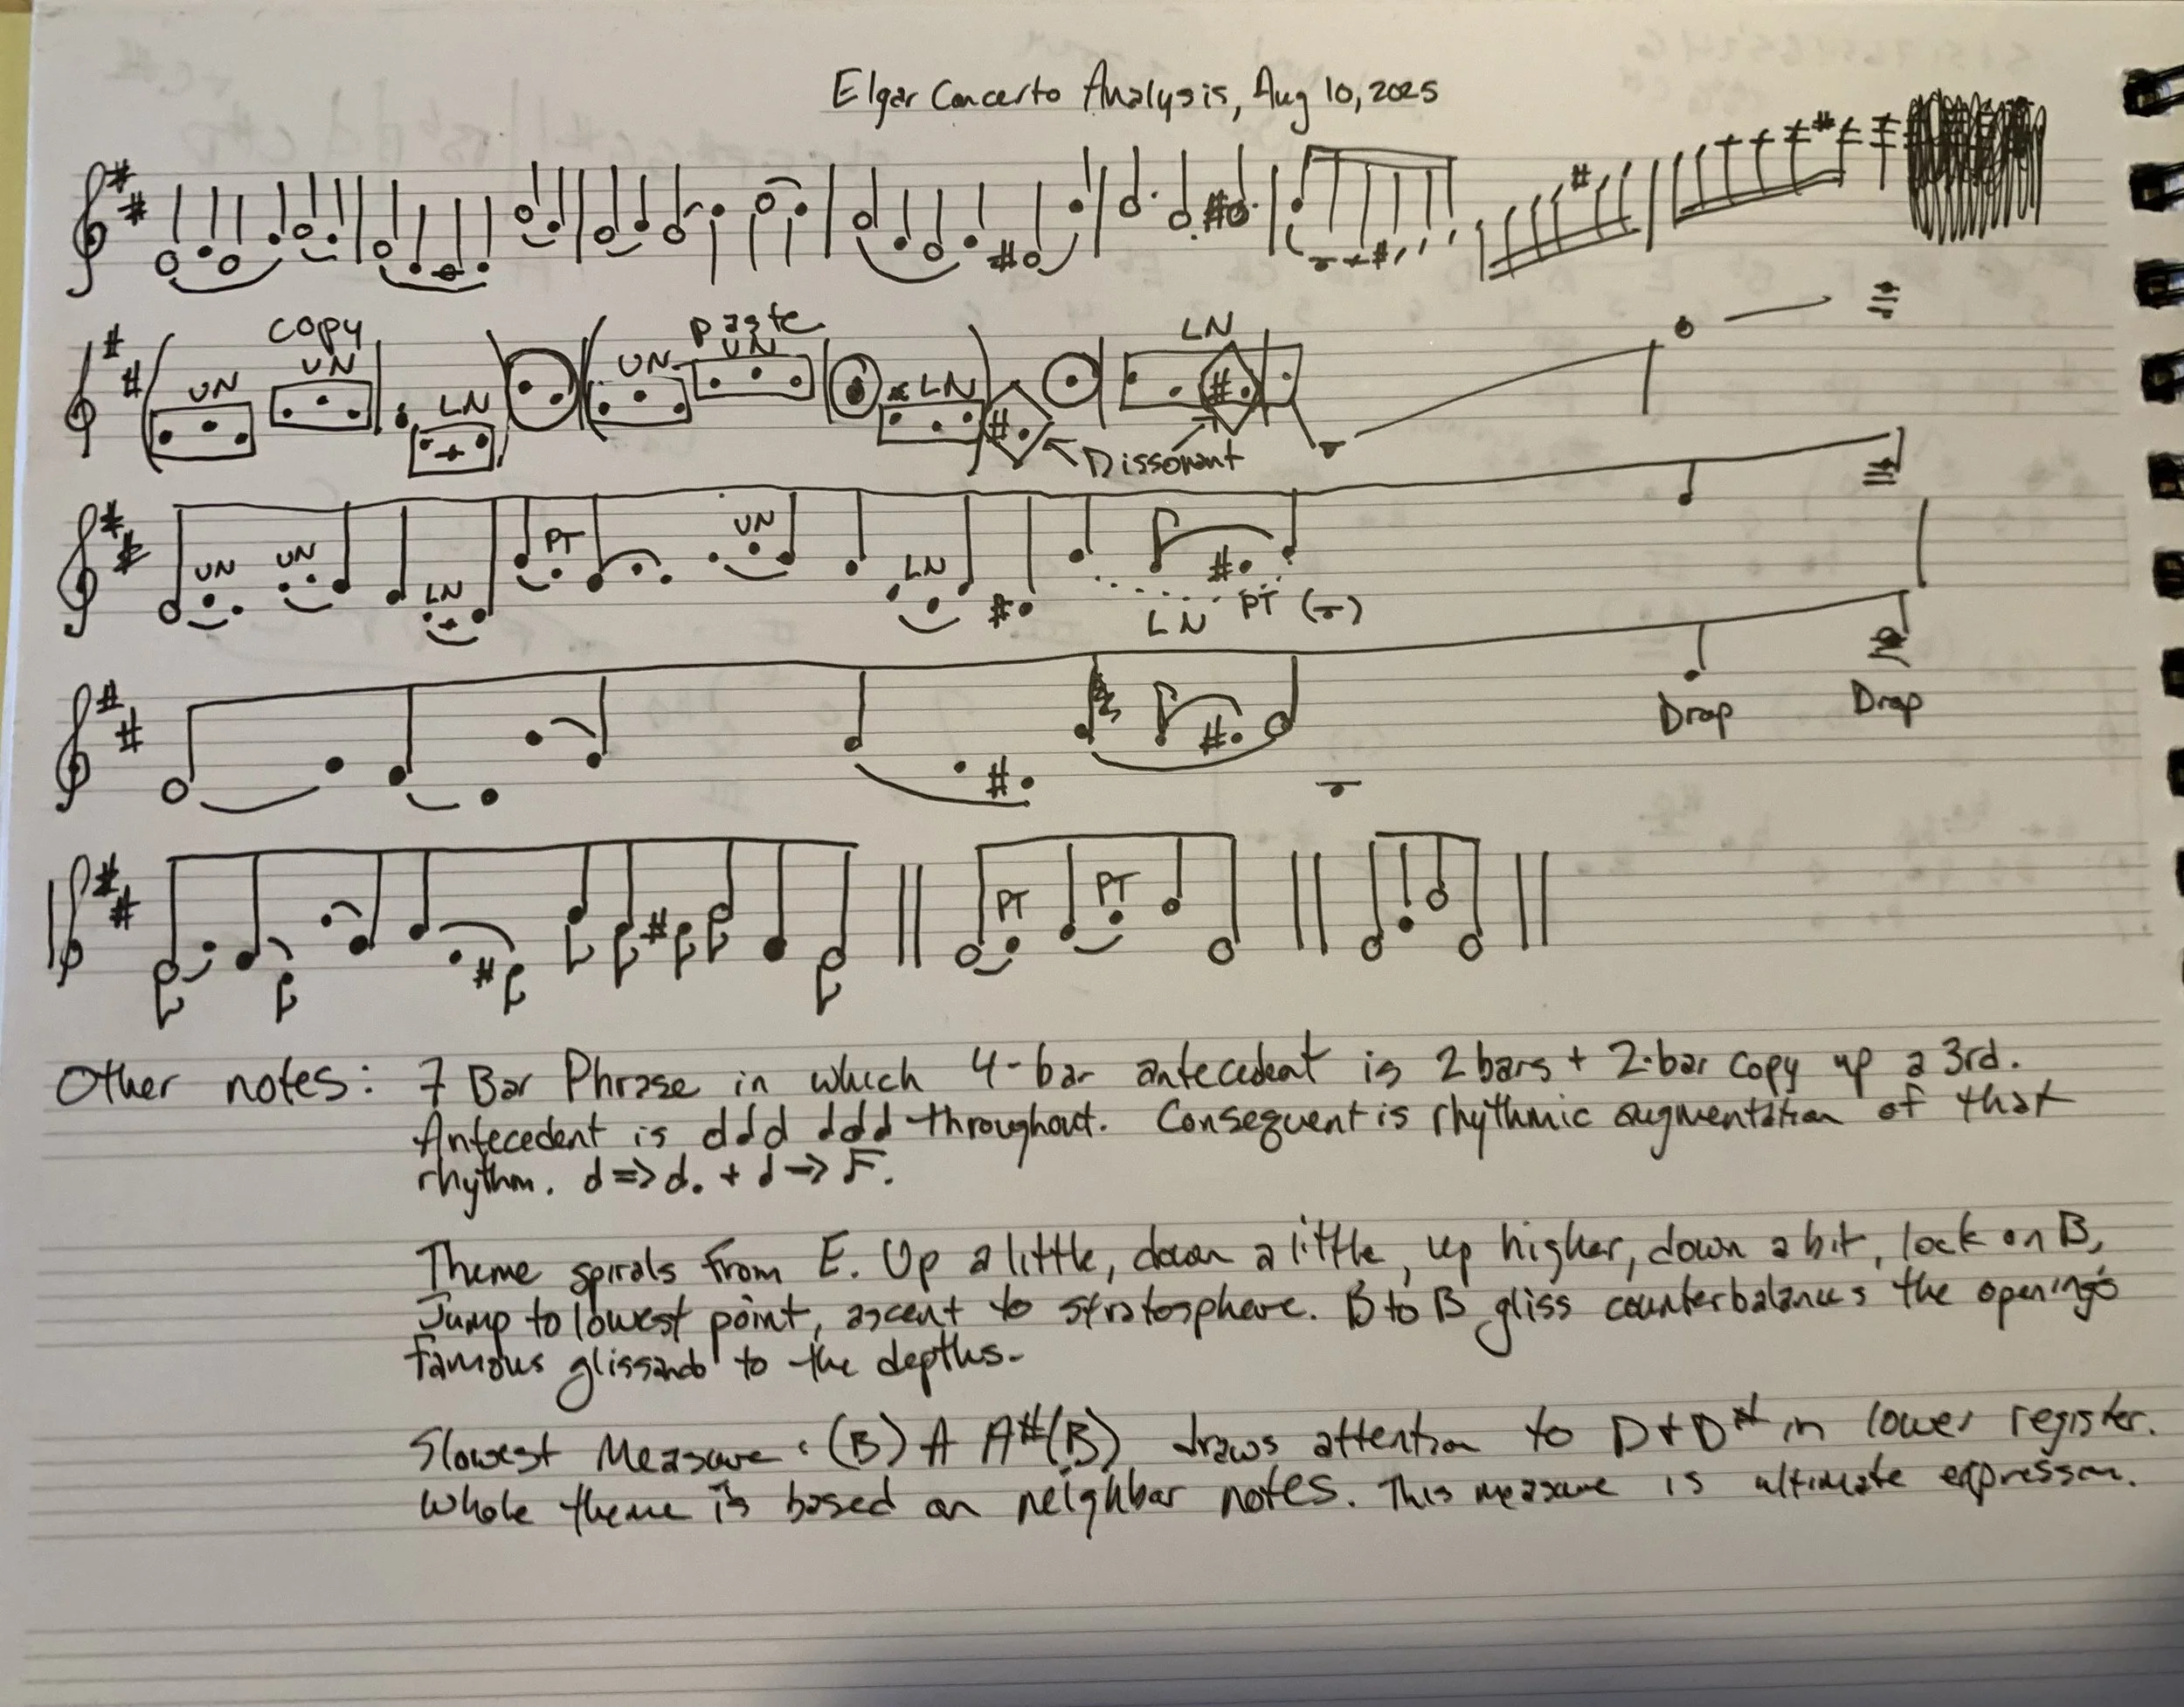 Elgar Concerto Analysis, Aug 10, 2025
copy Paste LN
UN UN LN UN UN LN
Dissonant
UN UN LN PT UN LN LN PT
Drop Drop
PT PT
Other notes: 7 Bar Phrase in which 4-bar antecedent is 2 bars + 2-bar copy up a 3rd.
Antecedent is throughout. Consequent is rhythmic augmentation of that
rhythm.
Theme spirals from E. Up a little, down a little, up higher, down a bit, lock on B,
Jump to lowest point, ascent to stratosphere. B to B gliss counterbalances the opening's
famous glissando to the depths.
Slowest Measure: (B) A A# (B) draws attention to D + D# in lower register.
Whole theme is based on neighbor notes. This measure is ultimate expression.